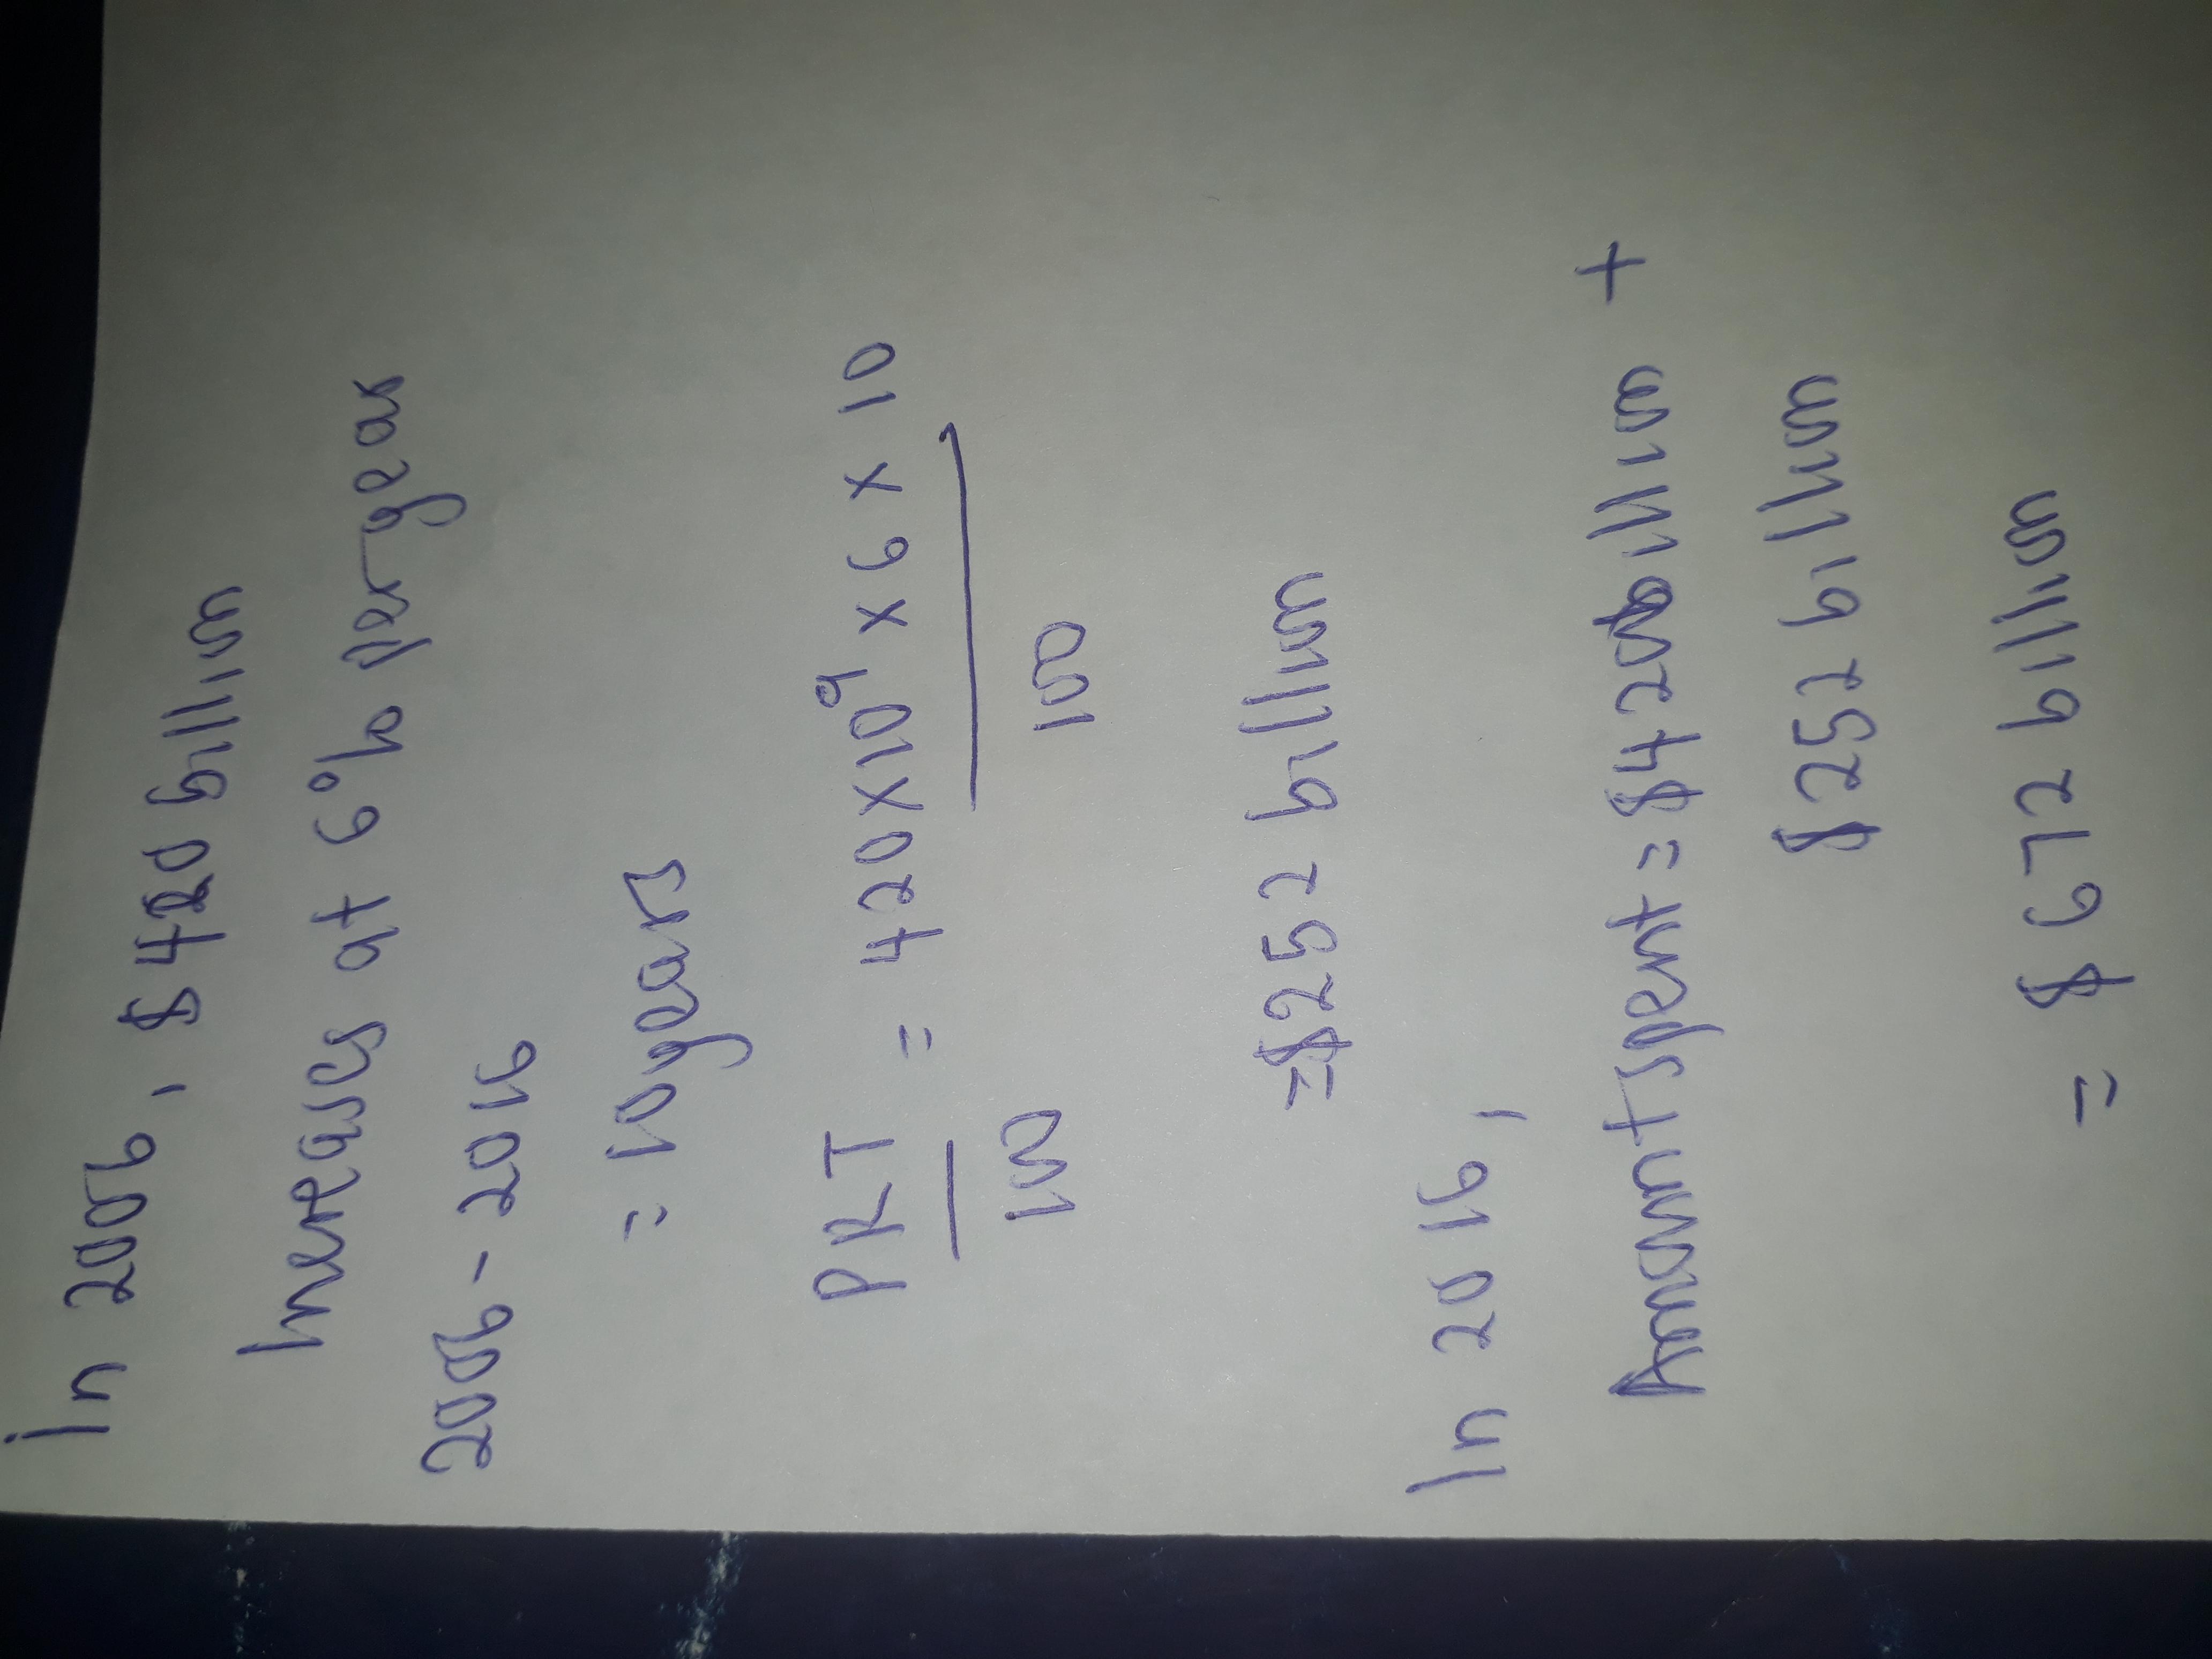 In 2006, $420 billion
Increases at 6% per year
2006 - 2016
= 10 years
PRT = 420 x 10⁹ x 6 x 10
100 100
= $252 billion
In 2016,
Amount spent = $420 billion +
$252 billion
= $672 billion